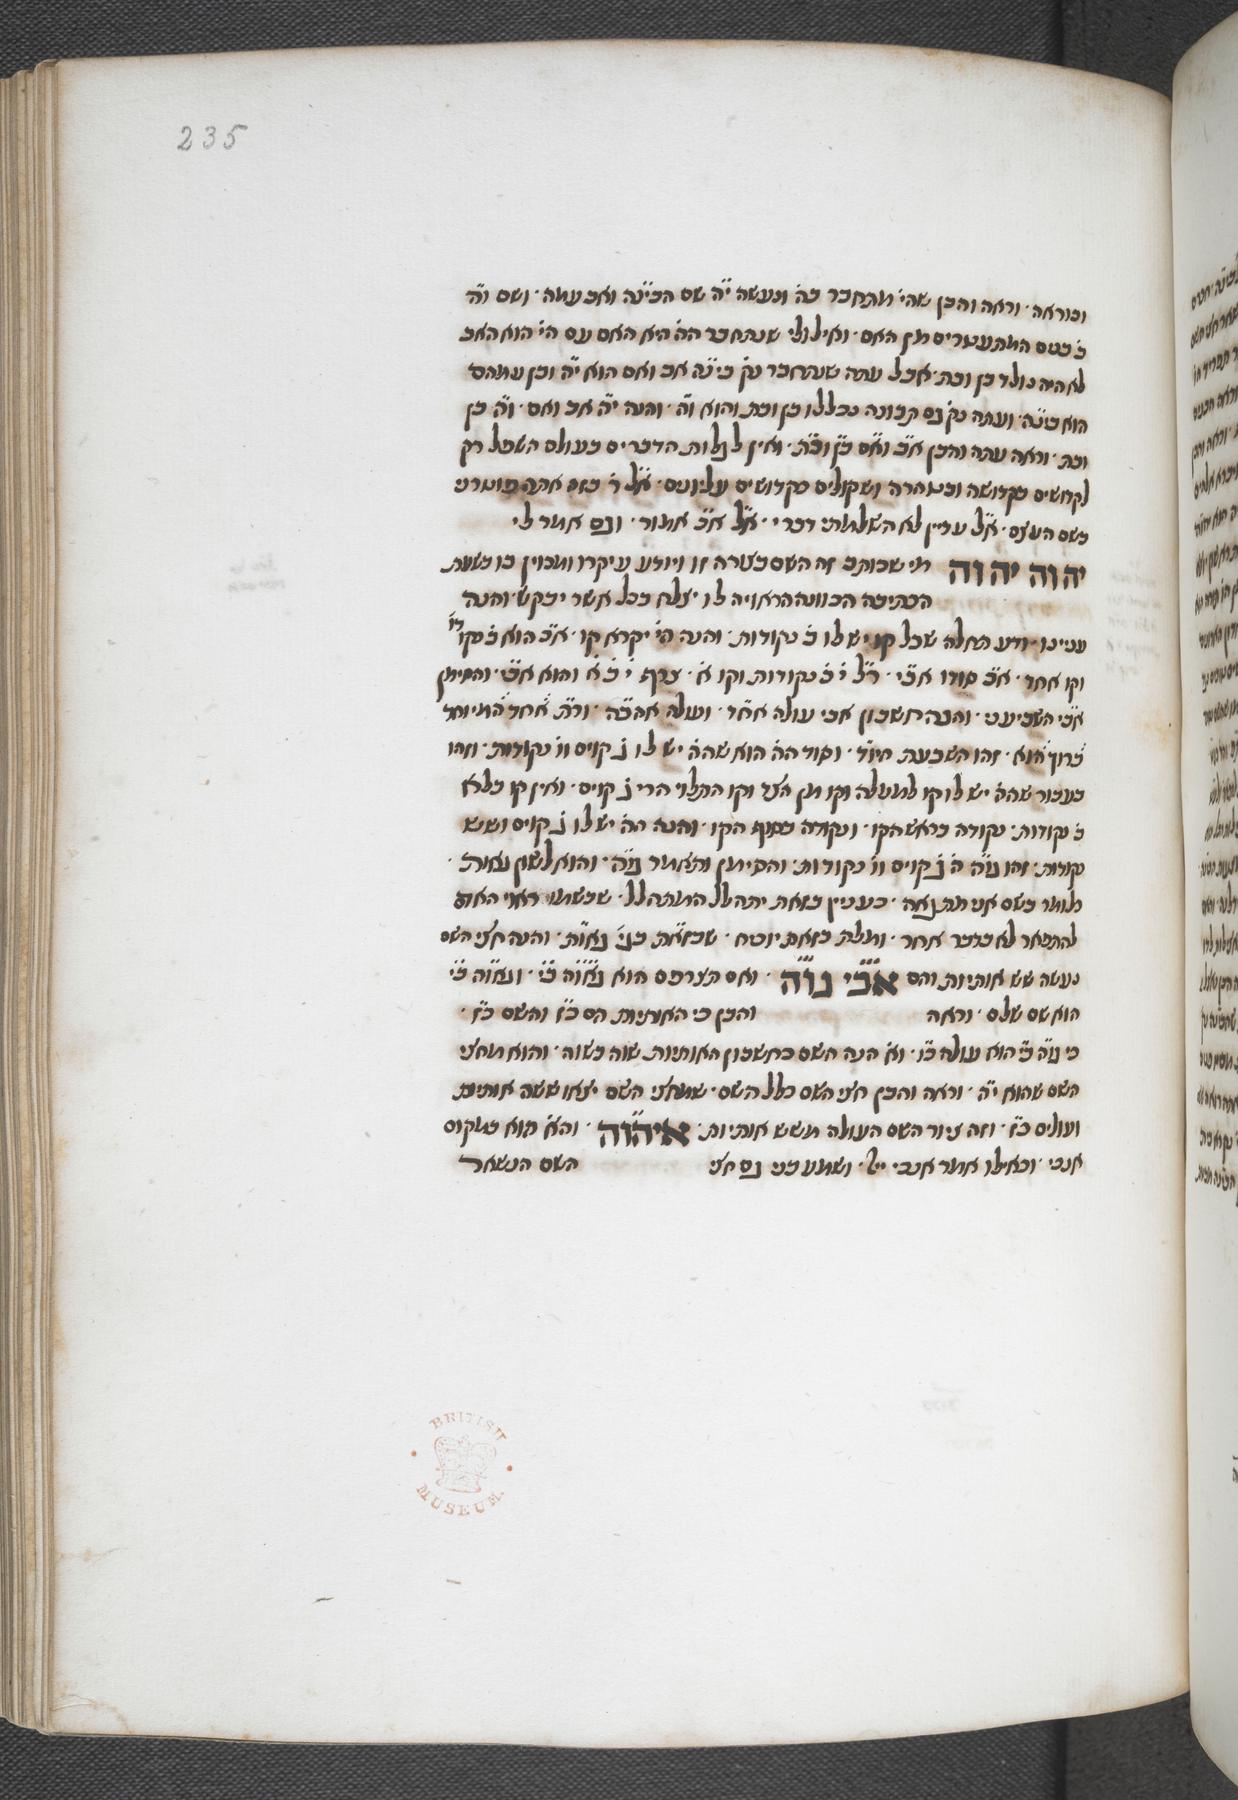 235
ונוראה · וראה והבן שהי׳ מתחבר בה׳ ונעשה י״ה שם הבי״נה ואב עמה · ושם ו״ה
ב׳ בנים המתעטרים מן האם · ואילולי שנתחבר הה׳ היא האם עם הי׳ הוא האב
לא היה נולד בן ובת · אבל עתה שנתחבר נק׳ בי״נה אב ואם הוא י״ה ובן עמהם
הוא בינ״ה · ועתה נק׳ גם תבונה בכללו בן ובת והוא ו״ה · והנה י״ה אב ואם · ו״ה בן
ובת · וראה עתה והבן א״ב וא״ם ב״ן וב״ת · ואין לגלות הדברים בעולם השפל רק
לקדושים בקדושה ובטהרה ושקולים בקדושים עליונים · א״ל ר׳ בזה אתה פוטרני
בשם העצם · א״ל עדיין לא השלמתי דברי · א״ל א״כ אמור · וגם אמר לי
יהוה יהוה מי שכותב זה השם בצורה זו ויודע עיקרו ומכוין בו בשעת
הכתיבה הכוונה הראויה לו יצלח בכל אשר יבקש · והנה
עניינו · ודע תחלה שכל קו יש לו ב׳ נקודות · והנה הי׳ יקרא קו · א״כ הוא ב׳ נקו׳
וקו אחד · א״כ סודו אב״י · ר״ל י׳ ב׳ נקודות וקו א׳ · צרף י׳ ב׳ א׳ והוא אב״י · והסימן
אב״י השביעני · והנה חשבון אבי עולה אח״ד · ועולה אהב״ה · ור״ת אחד המיוחד
ברוך הוא · זהו השבעת היו״ד · וסוד הה׳ הוא שהה׳ יש לו ג׳ קוים וו׳ נקודות · וזהו
בעבור שהה׳ יש לו קו למעלה וקו מן הצד וקו התלוי הרי ג׳ קוים · ואין קו בלא
ב׳ נקודות · נקודה בראש הקו · ונקודה בסוף הקו · והנה הה׳ יש לו ג׳ קוים ושש
נקודות · זהו גו״ה ה׳ ג׳ קוים וו׳ נקודות · והסימן ותאמר גו״ה · והוא לשון גאות ·
כלומר בשם אני מתגאה · כענין בזאת יתהלל המתהלל · שבשמו ראוי האדם
להתפאר לא בדבר אחר · ומלת בזאת יוכיח · שבזא״ת בגי׳ גאו״ת · והנה חצי השם
נעשה שש אותיות והם אב״י גו״ה · ואם תצרפם הוא גאו״ה ב״י · וגאו״ה ב״י
הוא שם שלם · וראה והבן כי האותיות הם כ״ו והשם כ״ו ·
כי גו״ה ב״י הוא עולה כ״ו · וא״ הנה השם בחשבון האותיות שוה בשוה · והוא מחצי
השם שהוא י״ה · וראה והבן חצי השם כלל השם · שמחצי השם יצאו ששה אותיות
ועולים כ״ו · וזה ציור השם העולה משש אותיות · איהוה · והא׳ הוא במקום
אנכי · וכאילו אמר אנכי ייי · ושמע כי גם חצי השם הנשאר
BRITISH MUSEUM